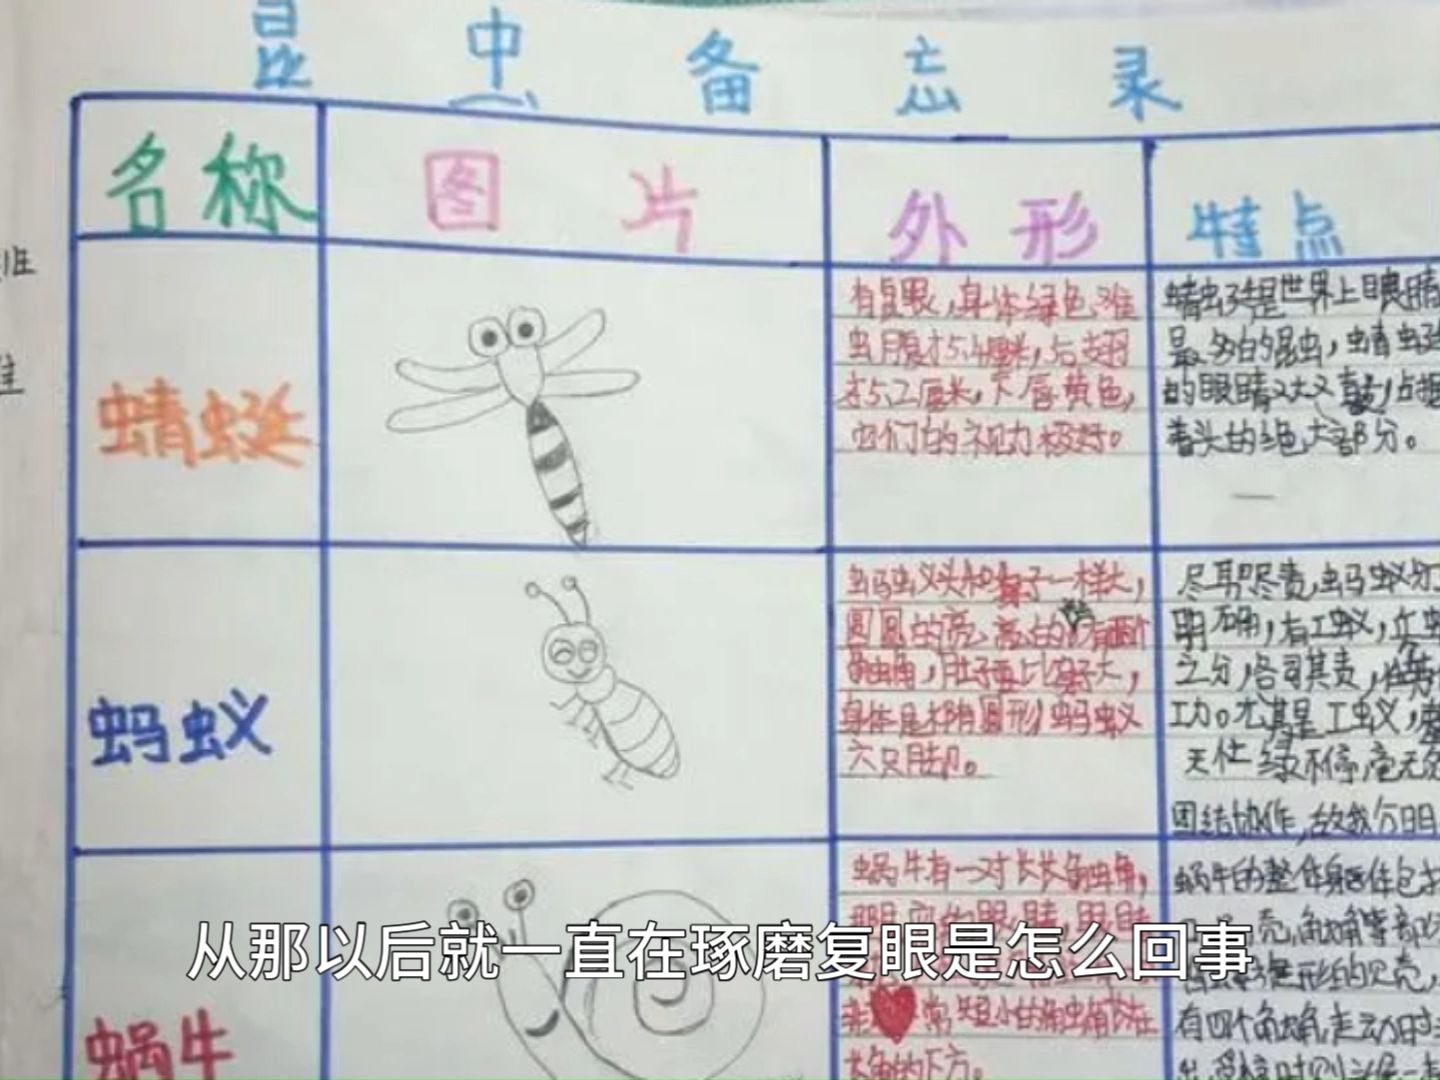 昆虫备忘录
名称
图片
外形
特点
蜻蜓
有复眼,身体绿色,雄
虫腹长5.4厘米,后翅
长5.2厘米,下唇黄色,
它们的视力极好。
蜻蜓是世界上眼睛
最多的昆虫,蜻蜓
的眼睛又大又鼓,占据
着头的绝大部分。
蚂蚁
蚂蚁头和 子一样大,
圆圆的亮亮的,有两个
触角,肚子要比 子大,
身体是椭圆形,蚂蚁
六只脚。
尽职尽责,蚂蚁分工
明确,有工蚁,
之分,各司其责,
功。尤其是工蚁,
天忙绿不停,毫无怨
团结协作,敌我分明
蜗牛
蜗牛有一对长长触角,
常短小的触角
长角的下方。
蜗牛的整体身体包括
有四个触角,走动时
从那以后就一直在琢磨复眼是怎么回事